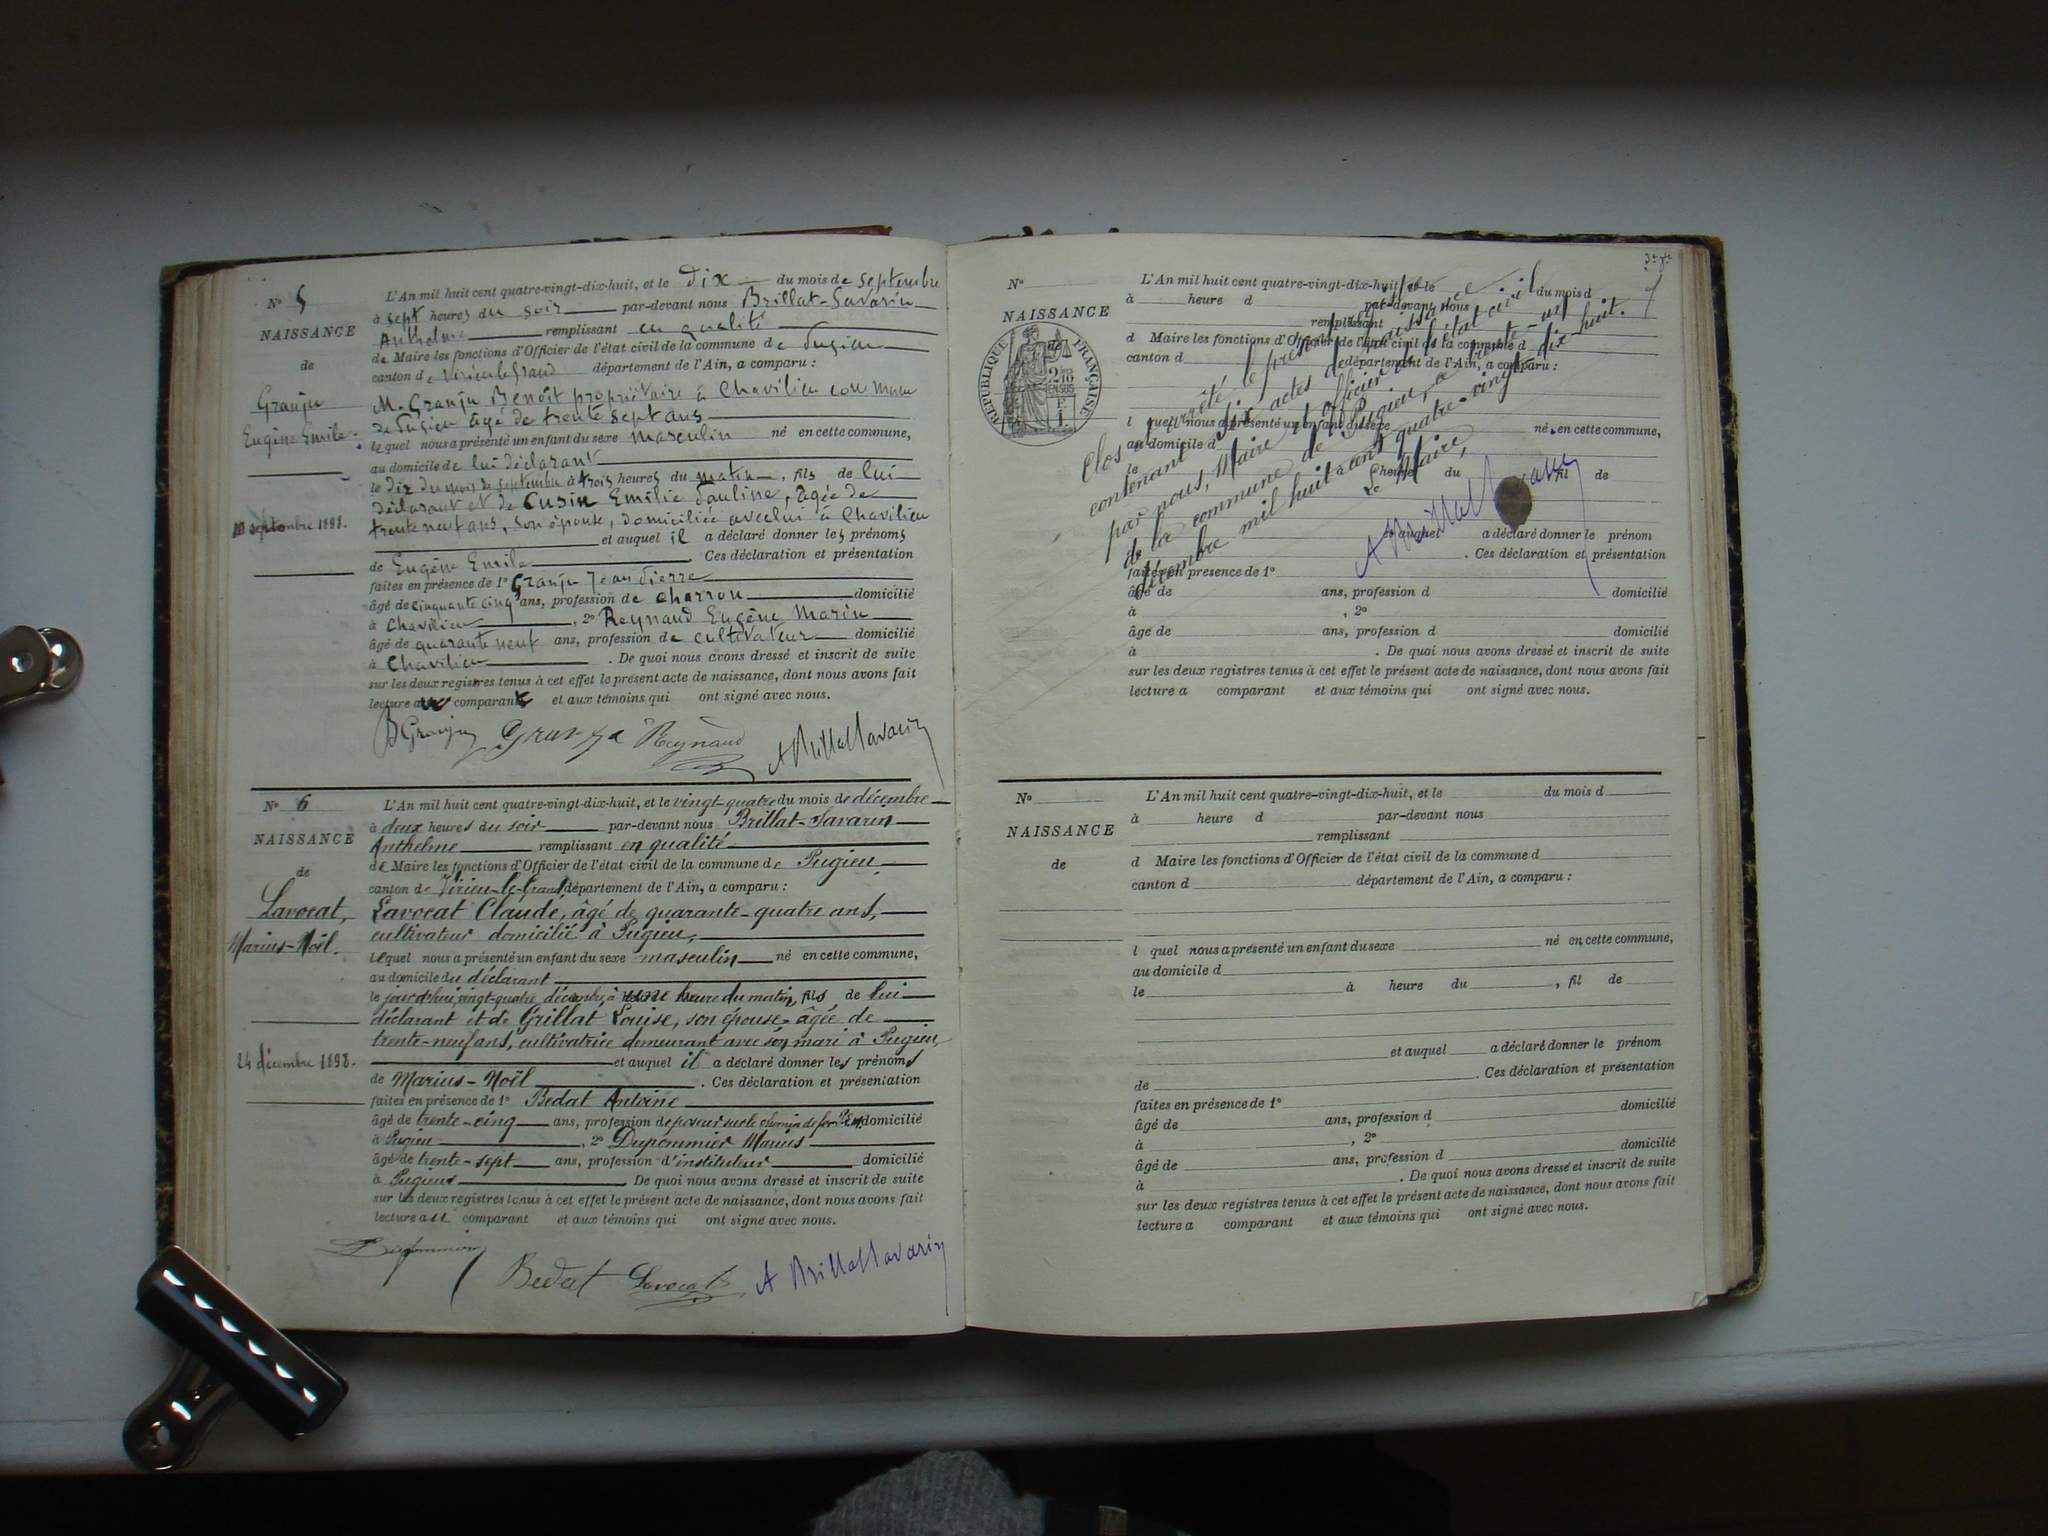 N° 5
NAISSANCE
de
Granju
Eugène Emile.
10 septembre 1898.
L'An mil huit cent quatre-vingt-dix-huit, et le dix du mois de septembre
à sept heures du soir par-devant nous Brillat-Savarin
Anthelme remplissant en qualité
de Maire les fonctions d'Officier de l'état civil de la commune de Pugieu
canton de Virieu le Grand département de l'Ain, a comparu :
M. Granju Benoît propriétaire à Chavilieu commune
de Pugieu âgé de trente sept ans
lequel nous a présenté un enfant du sexe masculin né en cette commune,
au domicile de lui déclarant
le dix du mois de septembre à trois heures du matin, fils de lui
déclarant et de Cusin Emilie Pauline, âgée de
trente neuf ans, son épouse, domiciliée avec lui à Chavilieu
et auquel il a déclaré donner les prénoms
de Eugène Emile . Ces déclaration et présentation
faites en présence de 1° Granju Jean Pierre
âgé de cinquante cinq ans, profession de charron domicilié
à Chavilieu , 2° Reynaud Eugène Marin
âgé de quarante neuf ans, profession de cultivateur domicilié
à Chavilieu . De quoi nous avons dressé et inscrit de suite
sur les deux registres tenus à cet effet le présent acte de naissance, dont nous avons fait
lecture aux comparants et aux témoins qui ont signé avec nous.
B Granju Granju Reynaud A Brillat Savarin
N° 6
NAISSANCE
de
Lavocat,
Marius-Noël.
24 décembre 1898.
L'An mil huit cent quatre-vingt-dix-huit, et le vingt-quatre du mois de décembre
à deux heures du soir par-devant nous Brillat-Savarin
Anthelme remplissant en qualité
de Maire les fonctions d'Officier de l'état civil de la commune de Pugieu,
canton de Virieu-le-Grand département de l'Ain, a comparu :
Lavocat Claude, âgé de quarante-quatre ans,
cultivateur domicilié à Pugieu,
lequel nous a présenté un enfant du sexe masculin né en cette commune,
au domicile du déclarant
le jourd'hui, vingt-quatre décembre, à une heure du matin, fils de lui
déclarant et de Grillat Louise, son épouse âgée de
trente-neuf ans, cultivatrice demeurant avec son mari à Pugieu,
et auquel il a déclaré donner les prénoms
de Marius-Noël . Ces déclaration et présentation
faites en présence de 1° Bedat Antoine
âgé de trente-cinq ans, profession de poseur sur le chemin de fer domicilié
à Pugieu , 2° Dupommier Marius
âgé de trente-sept ans, profession d'instituteur domicilié
à Pugieu . De quoi nous avons dressé et inscrit de suite
sur les deux registres tenus à cet effet le présent acte de naissance, dont nous avons fait
lecture au comparant et aux témoins qui ont signé avec nous.
Dupommier Bedat Lavocat A Brillat Savarin
N°
NAISSANCE
de
RÉPUBLIQUE FRANÇAISE
2/10 EN SUS
L'An mil huit cent quatre-vingt-dix-huit, et le du mois d
à heure d par-devant nous
remplissant
d Maire les fonctions d'Officier de l'état civil de la commune d
canton d département de l'Ain, a comparu :
l quel nous a présenté un enfant du sexe né en cette commune,
au domicile d
le à heure du fil de
et auquel a déclaré donner le prénom
. Ces déclaration et présentation
faites en présence de 1°
âgé de ans, profession d domicilié
à , 2°
âgé de ans, profession d domicilié
à . De quoi nous avons dressé et inscrit de suite
sur les deux registres tenus à cet effet le présent acte de naissance, dont nous avons fait
lecture a comparant et aux témoins qui ont signé avec nous.
Clos et arrêté le présent
contenant six actes de naissance
par nous, Maire et officier de l'état civil
de la commune de Pugieu, ce trente-un
décembre mil huit cent quatre-vingt dix-huit.
Le Maire,
A Brillat Savarin
N°
NAISSANCE
de
L'An mil huit cent quatre-vingt-dix-huit, et le du mois d
à heure d par-devant nous
remplissant
d Maire les fonctions d'Officier de l'état civil de la commune d
canton d département de l'Ain, a comparu :
l quel nous a présenté un enfant du sexe né en cette commune,
au domicile d
le à heure du , fil de
et auquel a déclaré donner le prénom
de . Ces déclaration et présentation
faites en présence de 1°
âgé de ans, profession d domicilié
à , 2°
âgé de ans, profession d domicilié
à . De quoi nous avons dressé et inscrit de suite
sur les deux registres tenus à cet effet le présent acte de naissance, dont nous avons fait
lecture a comparant et aux témoins qui ont signé avec nous.